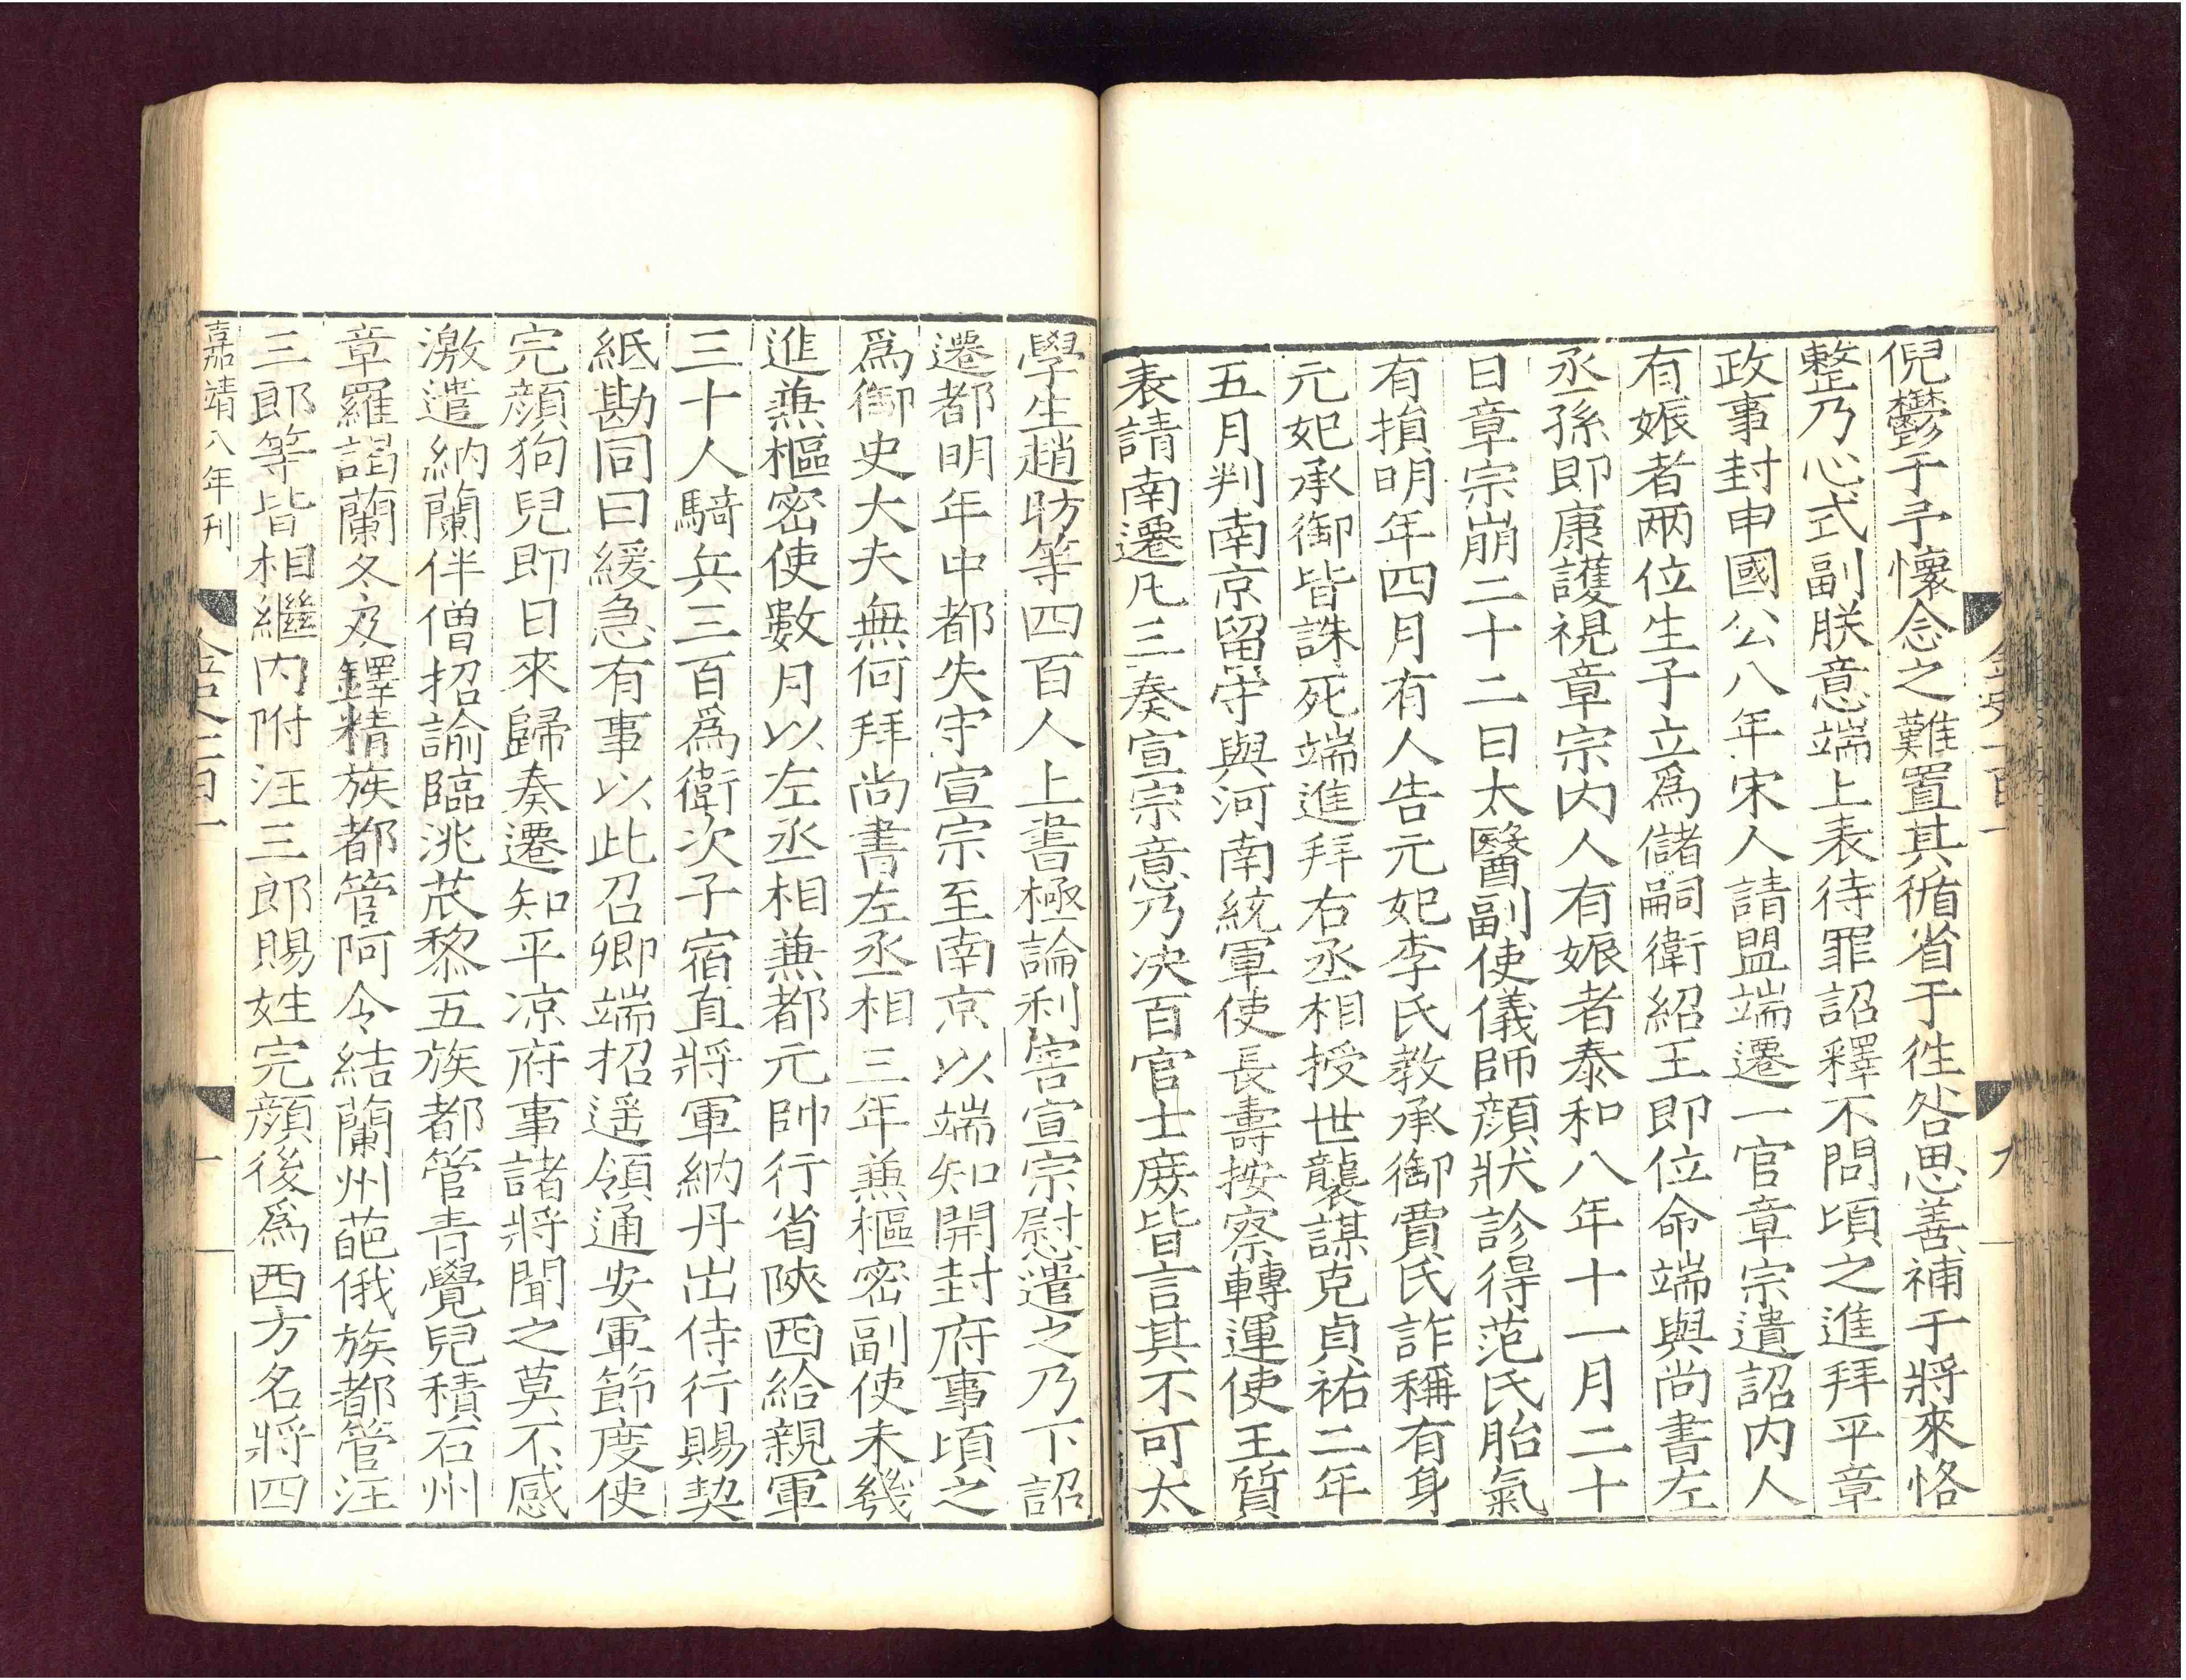 俔鬱于予懷念之難置其循省于徃咎思善補于將來恪
整乃心式副朕意端上表待罪詔釋不問頃之進拜平章
政事封申國公八年宋人請盟端遷一官章宗遺詔內人
有娠者兩位生子立爲儲嗣衛紹王即位命端與尚書左
丞孫即康護視章宗內人有娠者泰和八年十一月二十
日章宗崩二十二日太醫副使儀師顔狀診得范氏胎氣
有損明年四月有人告元妃李氏教承御賈氏詐稱有身
元妃承御皆誅死端進拜右丞相授世襲謀克貞祐二年
五月判南京留守與河南統軍使長壽按察轉運使王質
表請南遷凡三奏宣宗意乃决百官士庶皆言其不可太
學生趙昉等四百人上書極論利害宣宗慰遣之乃下詔
遷都明年中都失守宣宗至南京以端知開封府事頃之
爲御史大夫無何拜尚書左丞相三年兼樞密副使未幾
進兼樞密使數月以左丞相兼都元帥行省陝西給親軍
三十人騎兵三百爲衛次子宿直將軍納丹出侍行賜契
紙勘同曰緩急有事以此召卿端招遥領通安軍節度使
完顔狗兒即日來歸奏遷知平凉府事諸將聞之莫不感
激遣納蘭伴僧招諭臨洮苊黎五族都管青覺兒積石州
章羅謁蘭冬及鐸精族都管阿令結蘭州葩俄族都管汪
三郎等皆相繼內附汪三郎賜姓完顔後爲西方名將四
嘉靖八年刊
金史一百一
九
十